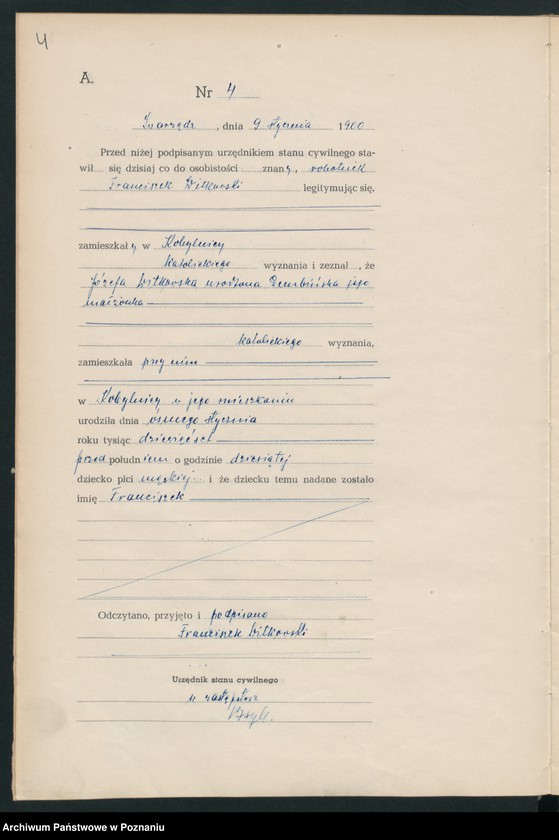 4
A.
Nr 4
, dnia 9 stycznia 1900
Przed niżej podpisanym urzędnikiem stanu cywilnego sta-
wił się dzisiaj co do osobistości znany, robotnik
Franciszek Witkowski legitymując się,
zamieszkały w Kobylnicy
katolickiego wyznania i zeznał, że
Józefa Witkowska urodzona Dembińska jego
małżonka
katolickiego wyznania,
zamieszkała przy nim
w Kobylnicy w jego mieszkaniu
urodziła dnia ósmego stycznia
roku tysiąc dziewięćset
przed południem o godzinie dziesiątej
dziecko płci męskiej i że dziecku temu nadane zostało
imię Franciszek
Odczytano, przyjęto i podpisano
Franciszek Witkowski
Urzędnik stanu cywilnego
w zastępstwie
Archiwum Państwowe w Poznaniu